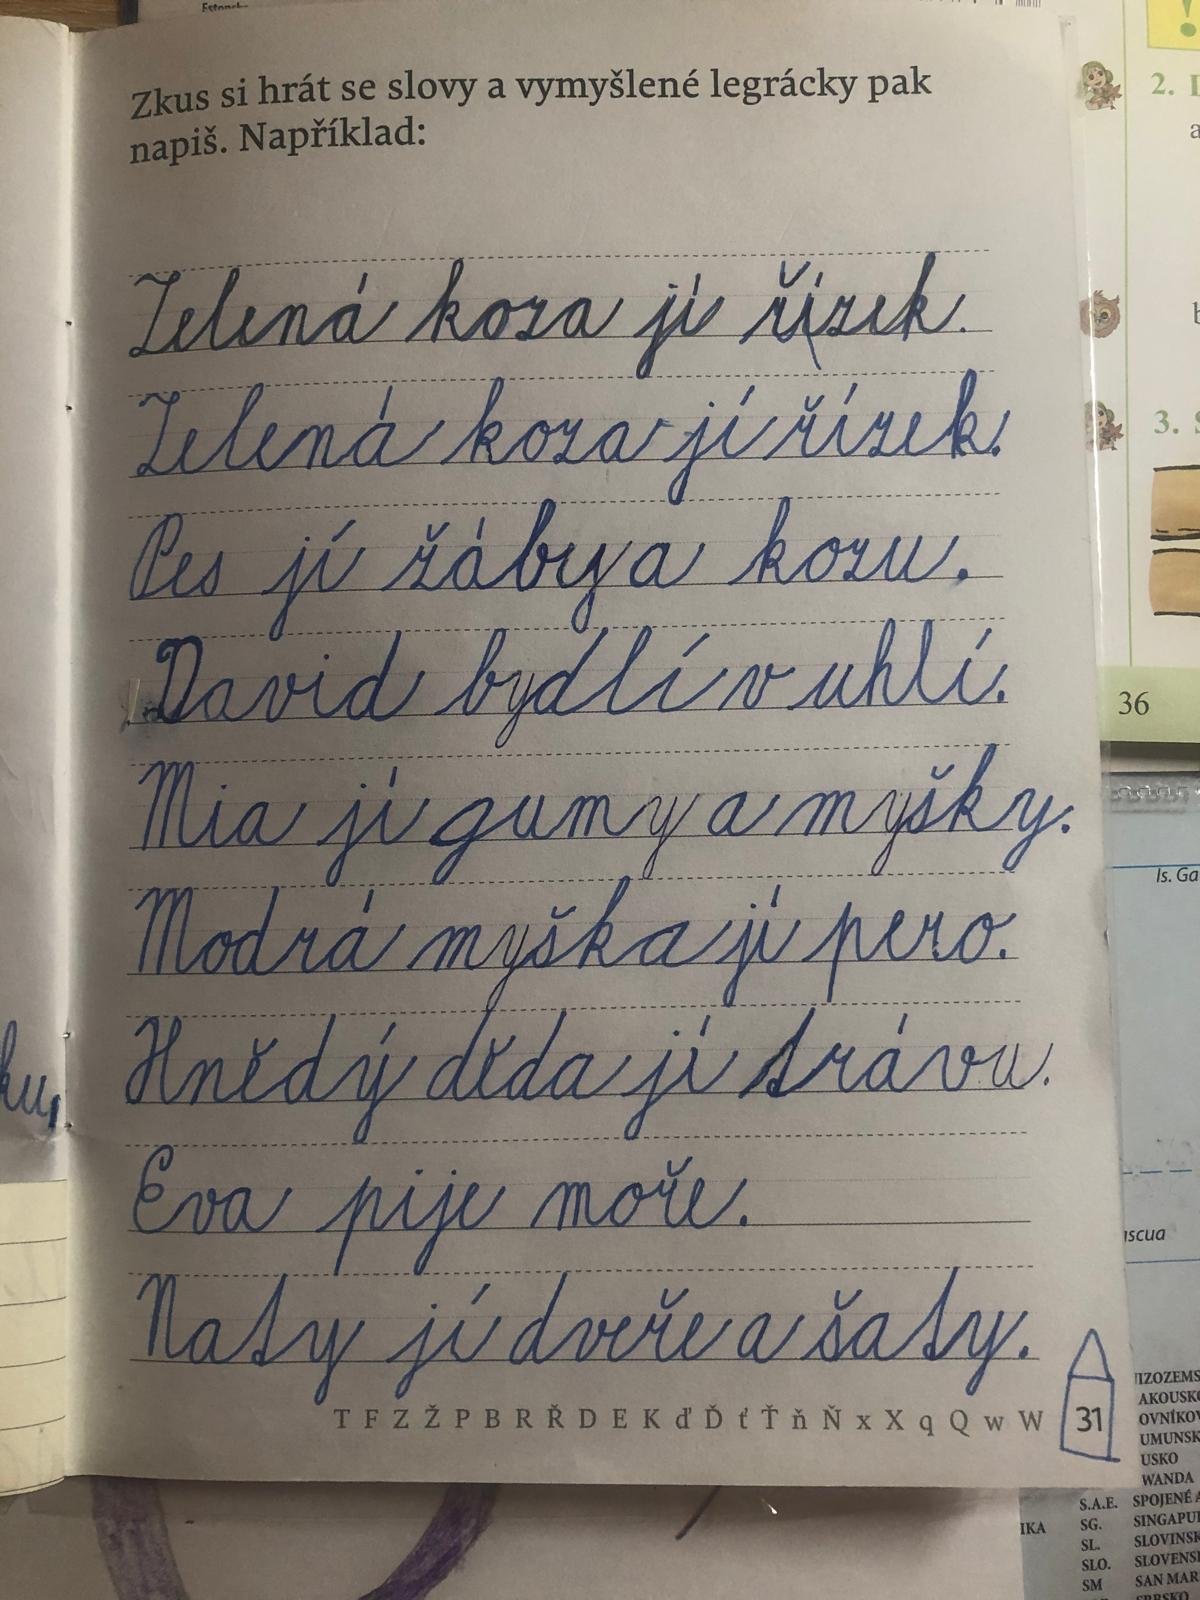 Estonsko
Zkus si hrát se slovy a vymyšlené legrácky pak
napiš. Například:
Zelená koza jí řízek.
Zelená koza jí řízek.
Pes jí žáby a kozu.
David bydlí v uhlí.
Mia jí gumy a myšky.
Modrá myška jí pero.
Hnědý děda jí trávu.
Eva pije moře.
Naty jí dveře a šaty.
T F Z Ž P B R Ř D E K ď Ď ť Ť ň Ň x X q Q w W
31
ku,
2.
3.
36
Is. Ga
ascua
IZOZEMS
AKOUSKO
OVNÍKOV
UMUNSK
USKO
WANDA
S.A.E. SPOJENÉ A
IKA SG. SINGAPUR
SL. SLOVINSK
SLO. SLOVENS
SM SAN MAR